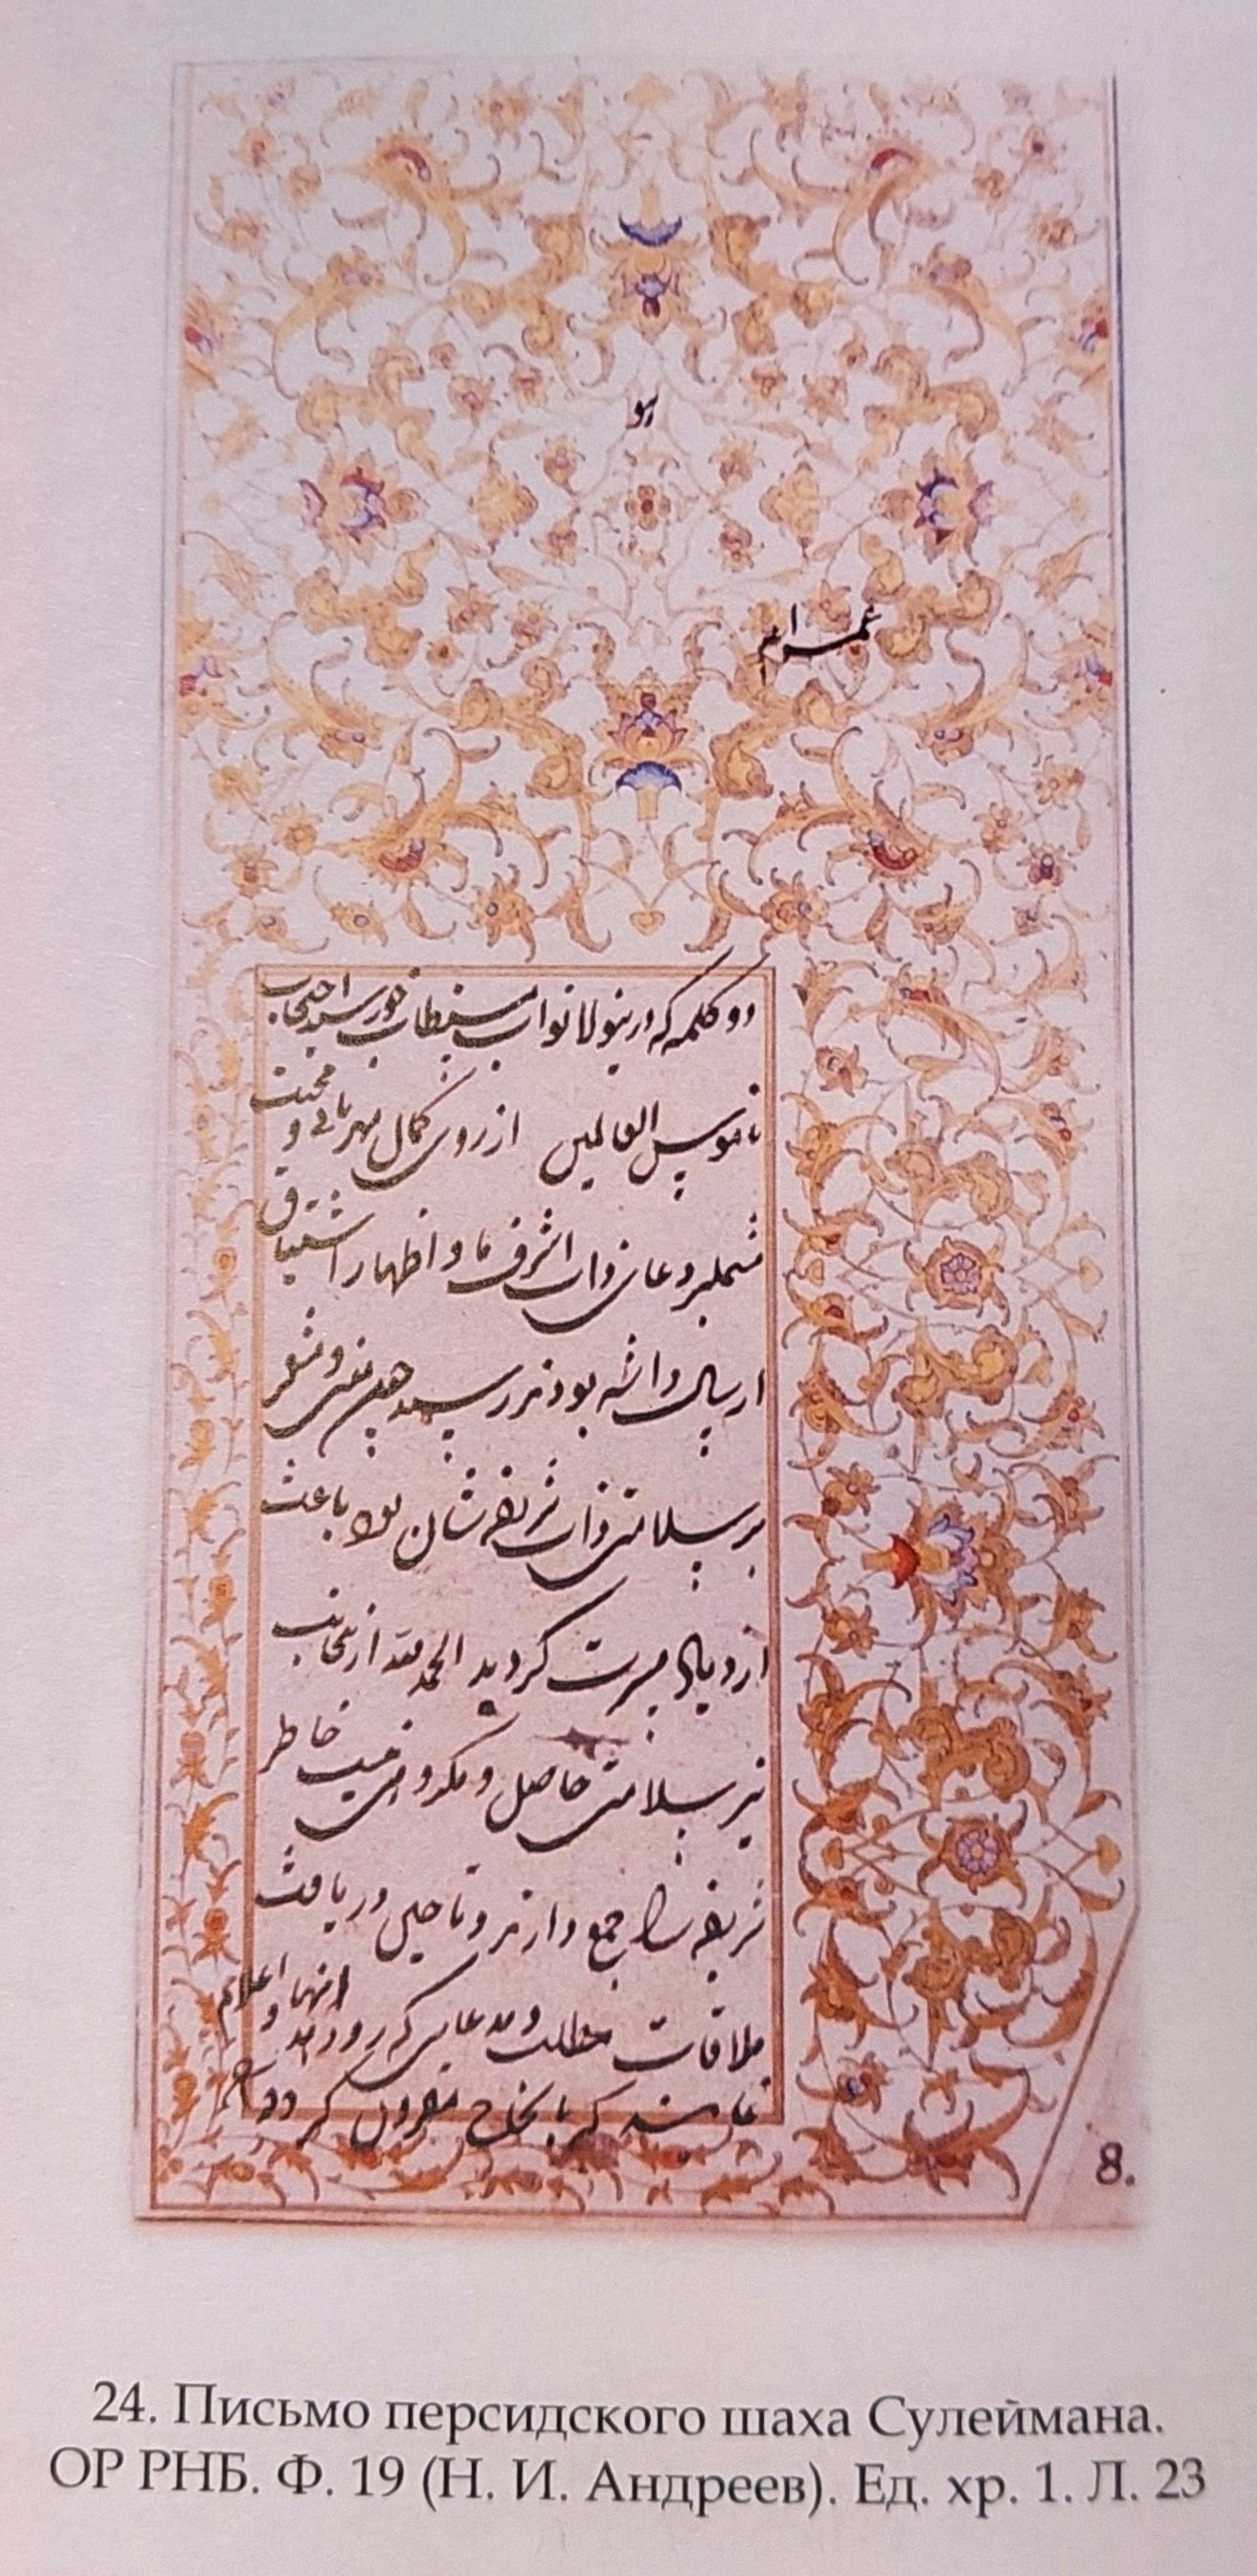 هو
دو کلمه که درینولا نواب مستطاب خورشید احتجاب
ناموس العالمین از روی کمال مهربانی و محبت
مشتمل بر دعای ذات اشرف ما و اظهار اشتیاق
ارسال داشته بودند رسید چون مبنی و مشعر
بر سلامتی ذات شریفه شان بود باعث
ازدیاد مسرت گردید الحمد لله از اینجانب
نیز سلامتی حاصل و مکروهی نیست خاطر
شریفه را جمع دارند و تا حین دریافت
ملاقات مطالب و مدعایی که رو دهد انها و اعلام
نمایند که بانجاح مقرون گردد
8.
24. Письмо персидского шаха Сулеймана.
ОР РНБ. Ф. 19 (Н. И. Андреев). Ед. хр. 1. Л. 23